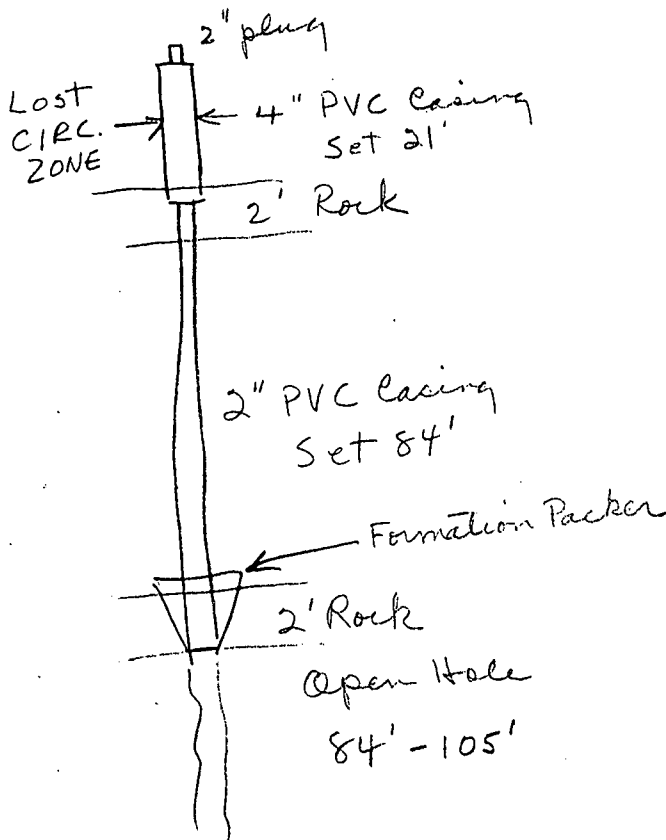 2" plug
LOST
CIRC.
ZONE
4" PVC Casing
Set 21'
2' Rock
2" PVC Casing
Set 84'
Formation Packer
2' Rock
Open Hole
84' - 105'